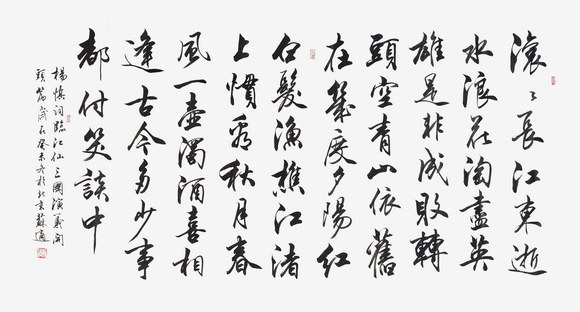 滾〻長江東逝
水浪花淘盡英
雄是非成敗轉
頭空青山依舊
在幾度夕陽紅
白髮漁樵江渚
上慣看秋月春
風一壺濁酒喜相
逢古今多少事
都付笑談中
楊慎詞臨江仙三國演義開
頭篇歲在癸未冬於北京蘇適